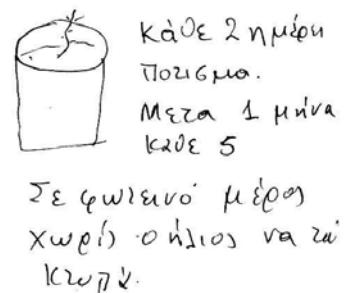 κάθε 2 ημέρη
Ποτισμα.
Μετα 1 μήνα
κάθε 5
Σε φωτεινό μέρος
χωρίς ο ήλιος να τα
κτυπά.